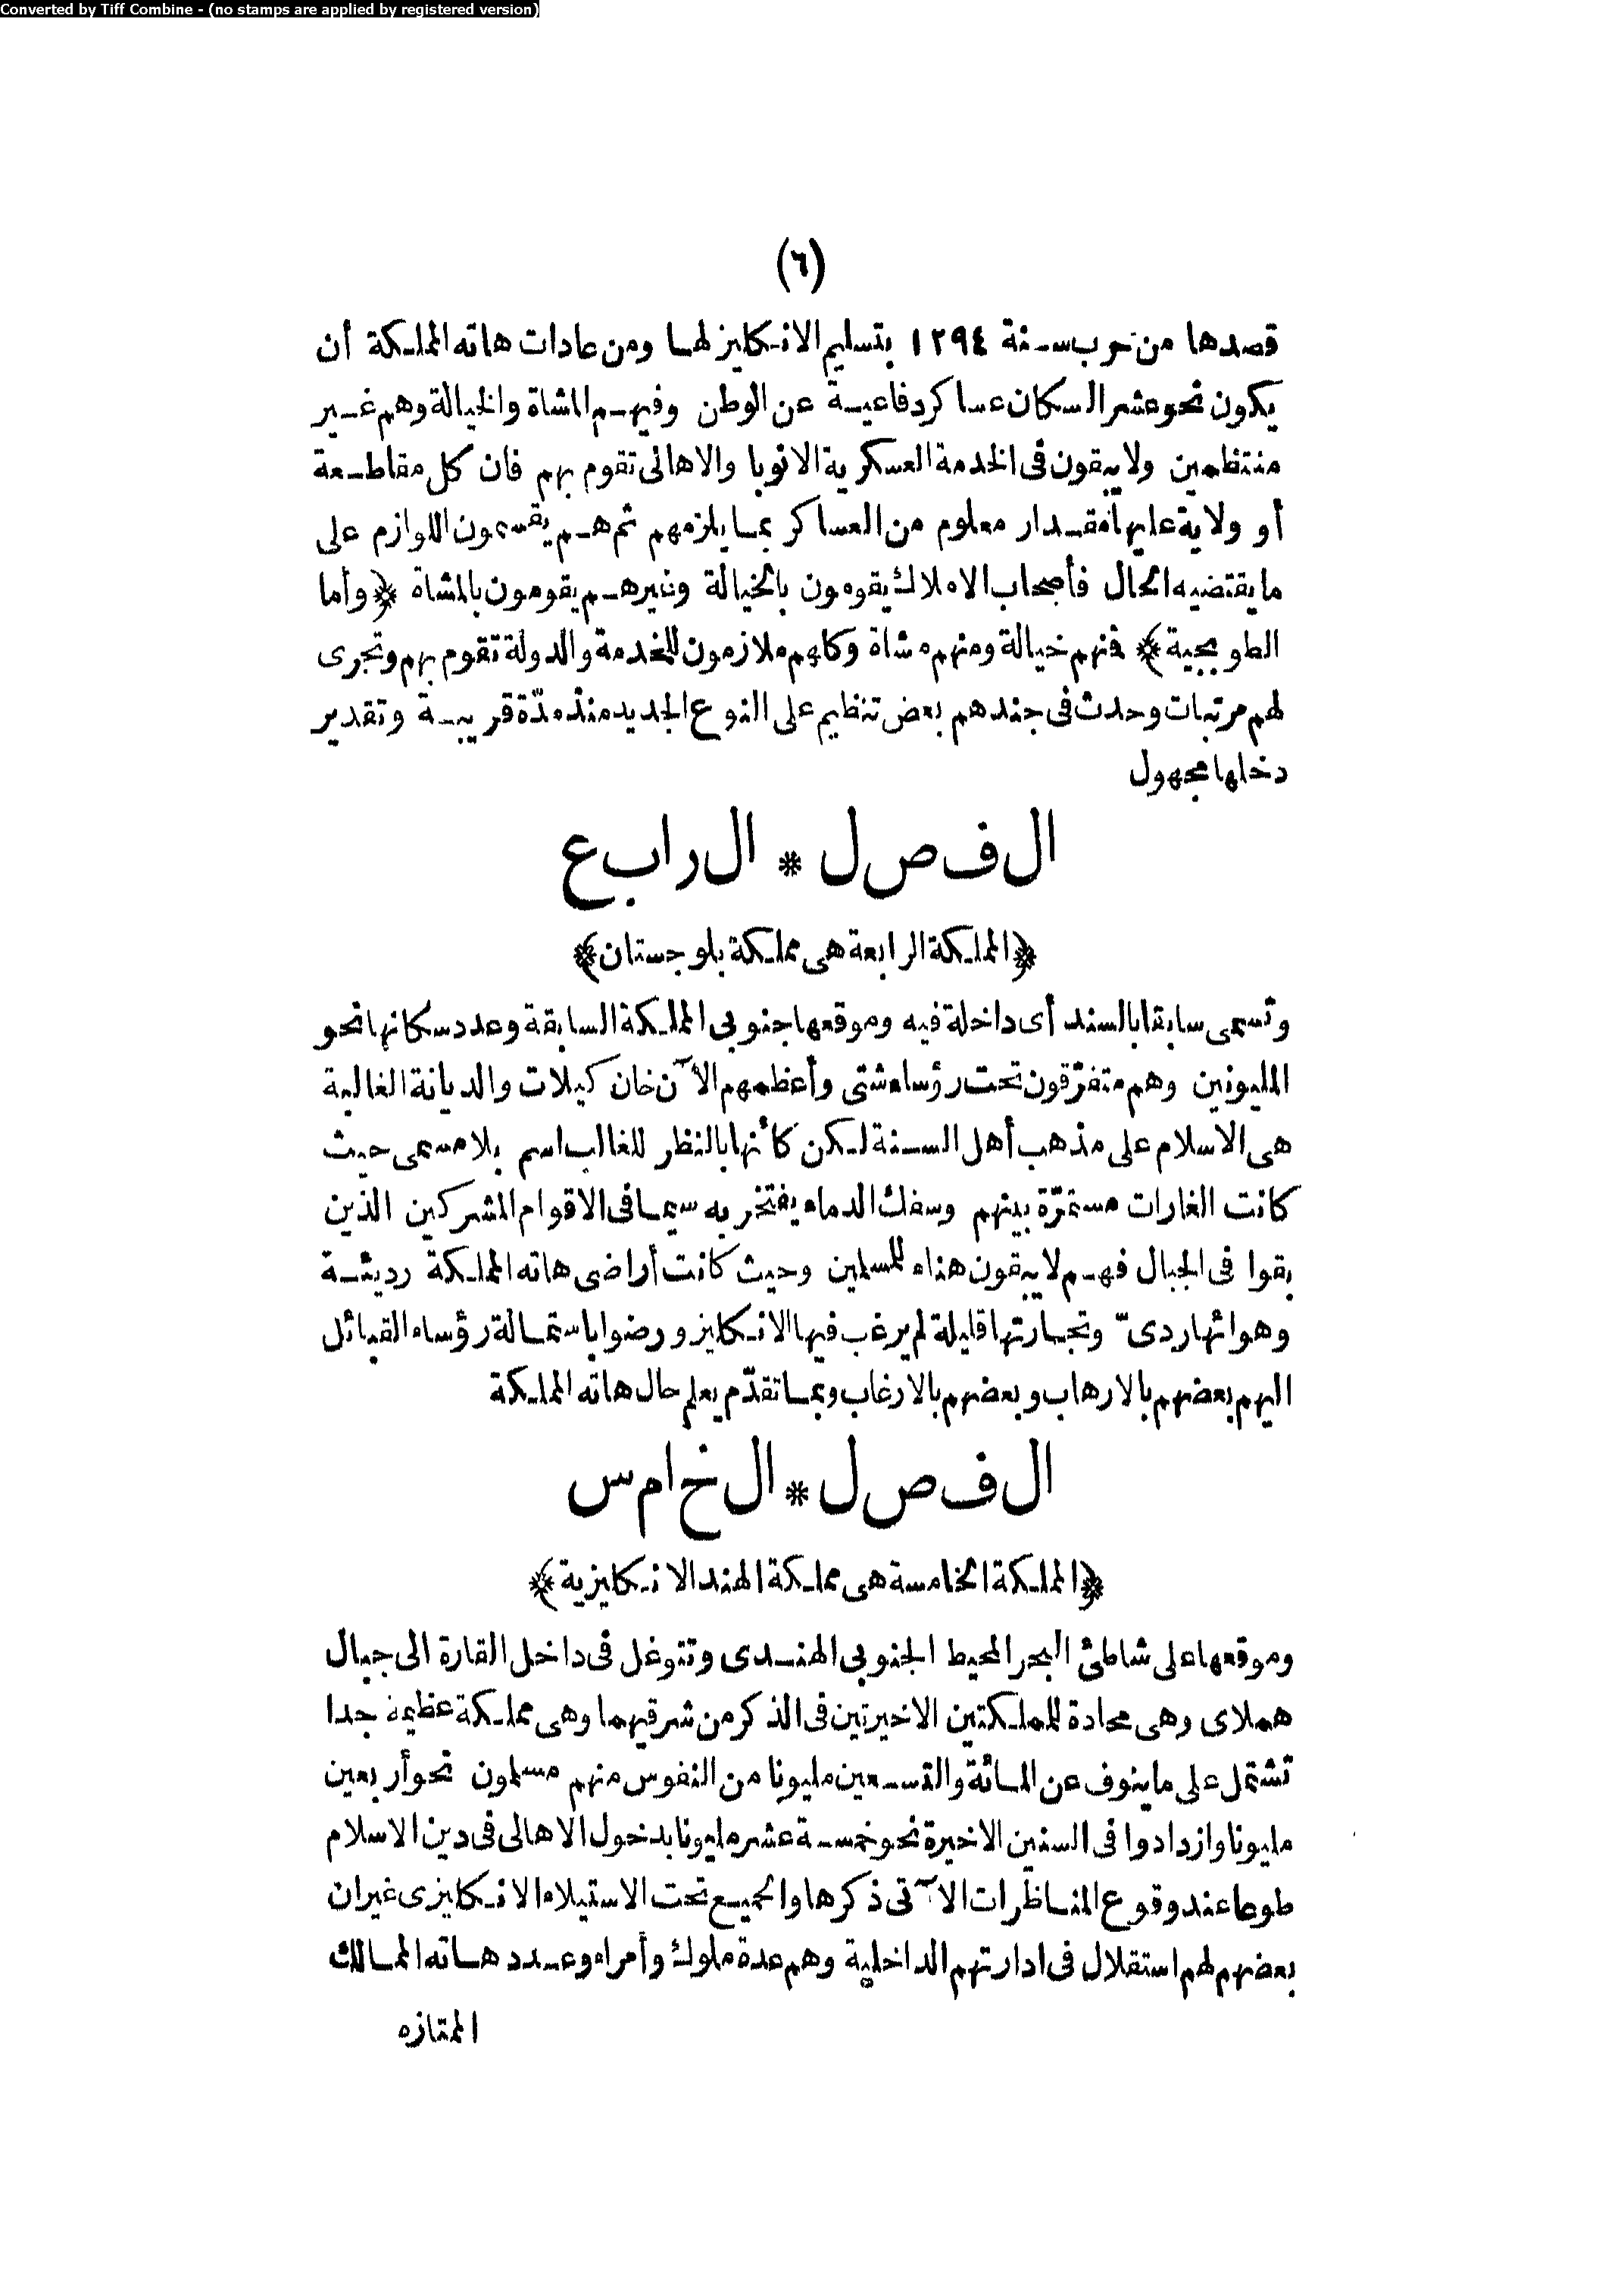 Converted by Tiff Combine - (no stamps are applied by registered version)
(٦)
قصدها من حرب سنة ١٢٩٤ بتسليم الانكليز لها ومن عادات هاته المملكة أن
يكون نحو عشر السكان عساكر دفاعية عن الوطن وفيهم المشاة والخيالة وهم غير
منتظمين ولا يبقون فى الخدمة العسكرية الا نوبا والاهالى تقوم بهم فان كل مقاطعة
أو ولاية عليها مقدار معلوم من العساكر بما يلزمهم ثم هم يقسمون اللوازم على
ما يقتضيه الحال فأصحاب الاملاك يقومون بالخيالة وغيرهم يقومون بالمشاة ﴿وأما
الطوبجية﴾ فمنهم خيالة ومنهم مشاة وكلهم ملازمون للخدمة والدولة تقوم بهم وتجرى
لهم مرتبات وحدث فى جندهم بعض تنظيم على النوع الجديد منذ مدّة قريبة وتقدير
دخلها مجهول
الفصل * الرابع
﴿المملكة الرابعة هى مملكة بلوجستان﴾
وتسمى سابقا بالسند أى داخلة فيه وموقعها جنوبى المملكة السابقة وعدد سكانها نحو
المليونين وهم متفرّقون تحت رؤساء شتى وأعظمهم الآن خان كيلات والديانة الغالبة
هى الاسلام على مذهب أهل السنة لكن كأنها بالنظر للغالب اسم بلا مسمى حيث
كانت الغارات مستمرّة بينهم وسفك الدماء يفتخر به سيما فى الاقوام المشركين الذين
بقوا فى الجبال فهم لا يبقون هناء للمسلمين وحيث كانت أراضى هاته المملكة رديئة
وهوائها ردىّ وتجارتها قليلة لم يرغب فيها الانكليز ورضوا باستمالة رؤساء القبائل
اليهم بعضهم بالارهاب وبعضهم بالارغاب وبما تقدّم يعلم حال هاته المملكة
الفصل * الخامس
﴿المملكة الخامسة هى مملكة الهند الانكليزية﴾
وموقعها على شاطئ البحر المحيط الجنوبى الهندى وتتوغل فى داخل القارة الى جبال
هملاى وهى محادة للمملكتين الاخيرتين فى الذكر من شرقيهما وهى مملكة عظيمة جدا
تشتمل على ما ينوف عن المائة والتسعين مليونا من النفوس منهم مسلمون نحو أربعين
مليونا وازدادوا فى السنين الاخيرة نحو خمسة عشر مليونا بدخول الاهالى فى دين الاسلام
طوعا عند وقوع المناظرات الآتى ذكرها والجميع تحت الاستيلاء الانكليزى غير ان
بعضهم لهم استقلال فى ادارتهم الداخلية وهم عدة ملوك وأمراء وعدد هاته الممالك
الممتازه